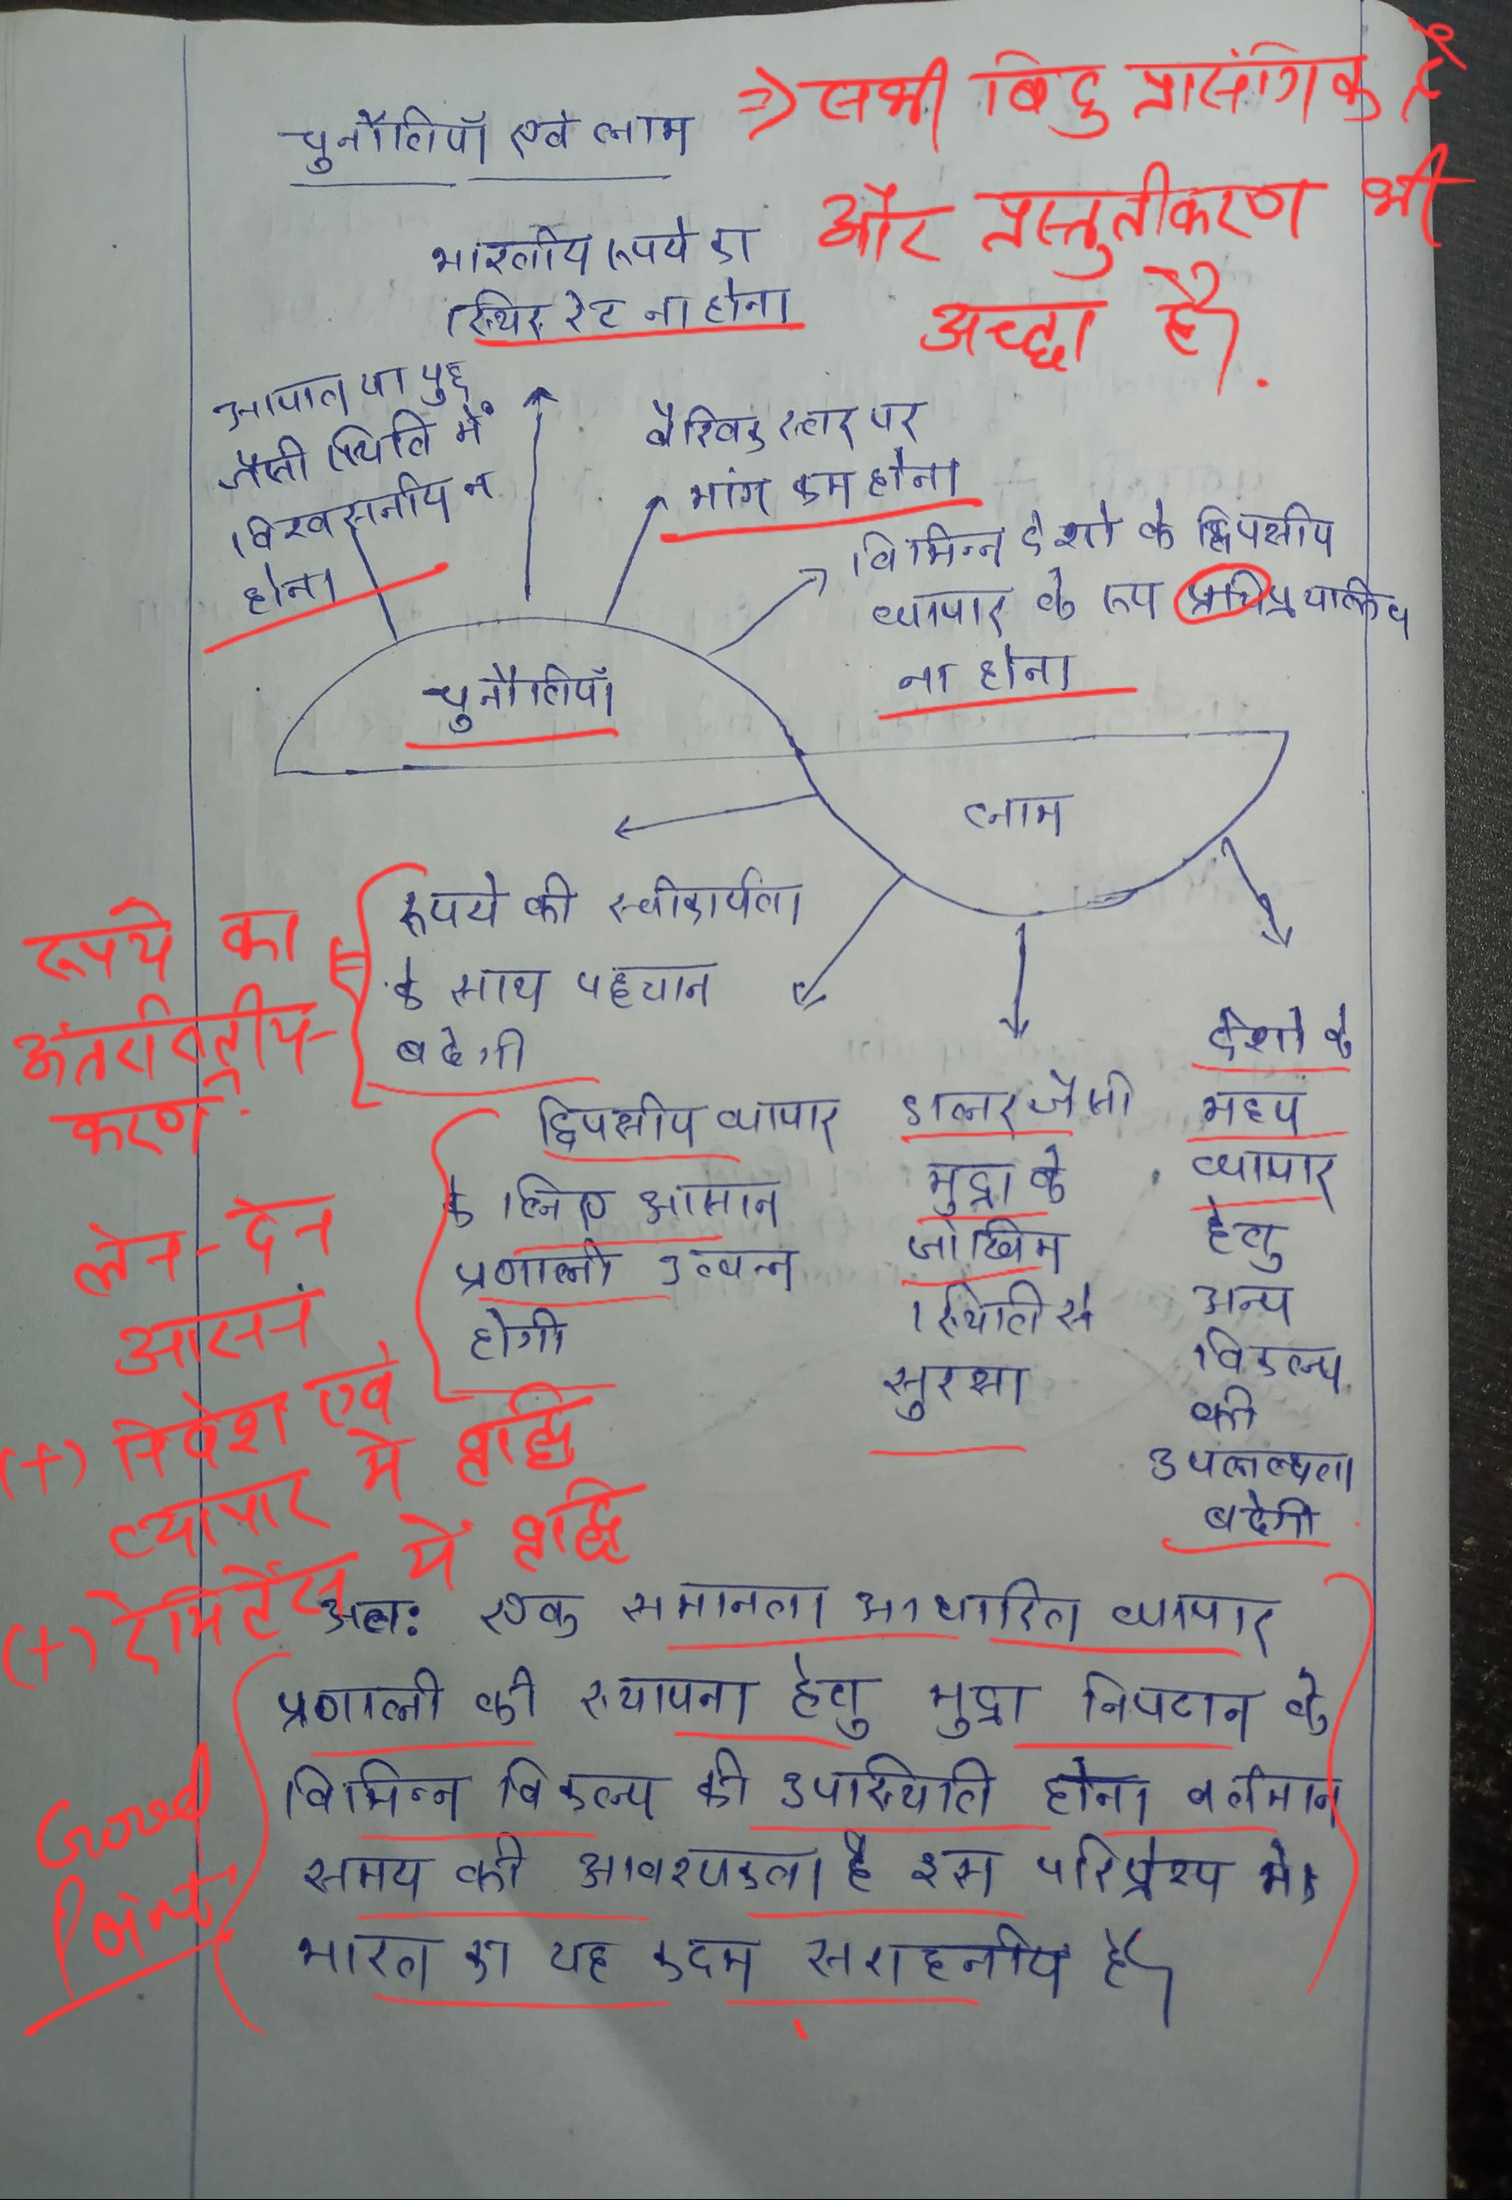 चुनौतियाँ एवं लाभ
=> सभी बिंदु प्रासंगिक है
और प्रस्तुतीकरण भी
अच्छा है.
भारतीय रूपये का
स्थिर रेट ना होना
आपात या युद्ध
जैसी स्थिति में
विश्वसनीय न
होना
वैश्विक स्तर पर
मांग कम होना
विभिन्न देशो के द्विपक्षीय
व्यापार के रूप
ना होना
चुनौतियाँ
लाभ
रूपये की स्वीकार्यता
के साथ पहचान
बढेगी
रूपये का
अंतर्राष्ट्रीय-
करण.
द्विपक्षीय व्यापार
के लिए आसान
प्रणाली उत्पन्न
होगी
लेन-देन
आसान
(+) निवेश एवं
व्यापार में वृद्धि
(+) रेमिटेंस में वृद्धि
डालर जैसी
मुद्रा के
जोखिम
स्थिति से
सुरक्षा
देशो के
मध्य
व्यापार
हेतु
अन्य
विकल्प
की
उपलब्धता
बढेगी
अतः एक समानता आधारित व्यापार
प्रणाली की स्थापना हेतु मुद्रा निपटान के
विभिन्न विकल्प की उपस्थिति होना वर्तमान
समय की आवश्यकता है इस परिप्रेश्य मे
भारत का यह कदम सराहनीय है।
Good
Point